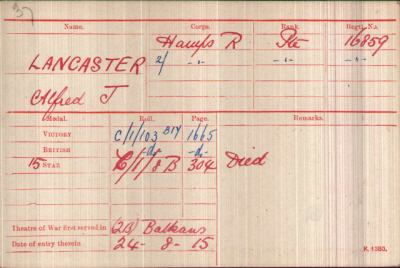 37
Name. Corps. Rank. Regtl. No.
Hamps R Pte 16859
LANCASTER 2/ -"- -"- -"-
Alfred J
Medal. Roll. Page. Remarks.
VICTORY C/1/103 B14 1665
BRITISH -do- -do-
15 STAR C/1/8 B 304 Died
Theatre of War first served in (2B) Balkans
Date of entry therein 24- 8- 15
K. 1380.